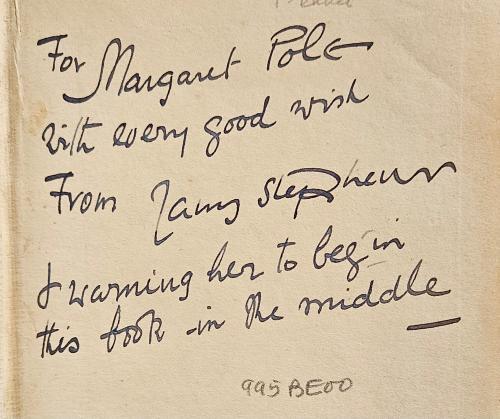 For Margaret Pole
with every good wish
From James Stephens
& warning her to begin
this book in the middle
995 BEOO